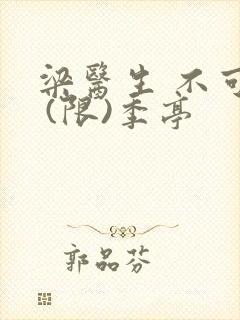 梁醫生 不可
(限)季亭
郭品芬